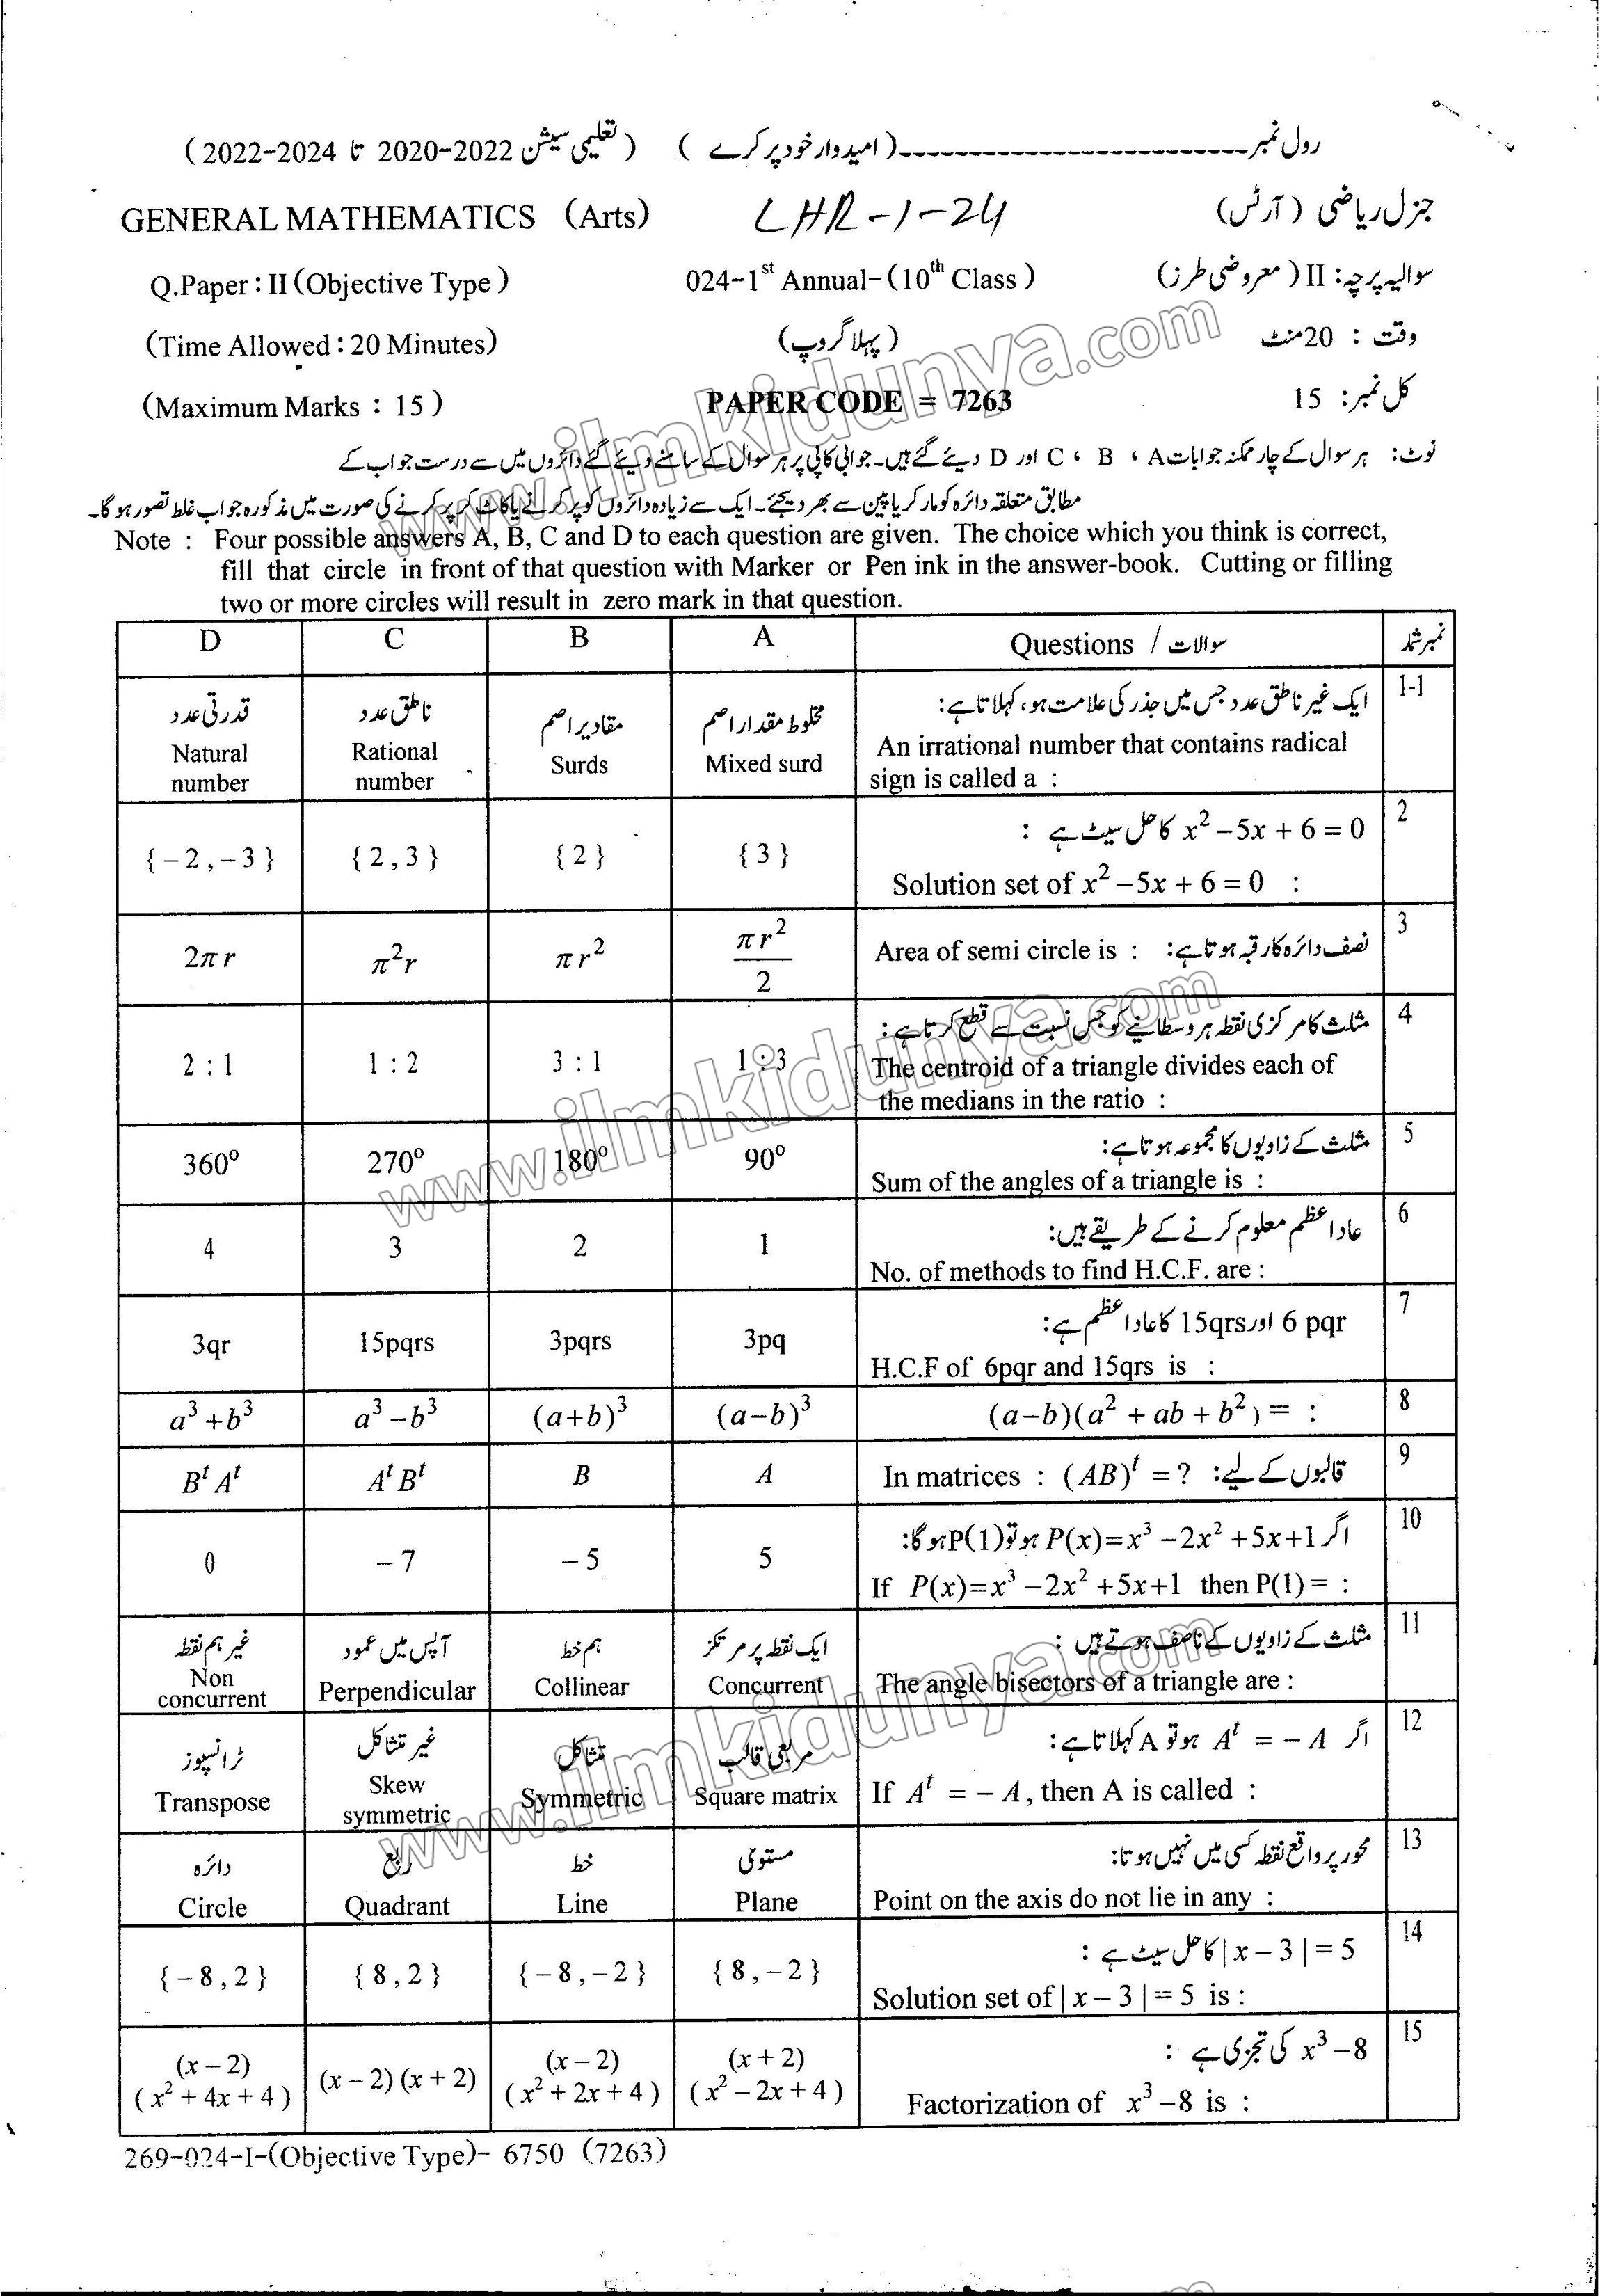 رول نمبر---------------------------(امیدوار خود پر کرے ) (تعلیمی سیشن 2022-2020 تا 2024-2022 )
GENERAL MATHEMATICS (Arts) LHR-1-24 جنرل ریاضی (آرٹس)
Q.Paper : II (Objective Type ) 024-1st Annual-(10th Class ) سوالیہ پرچہ: II (معروضی طرز)
(Time Allowed : 20 Minutes) (پہلا گروپ) وقت : 20 منٹ
(Maximum Marks : 15 ) PAPER CODE = 7263 کل نمبر: 15
نوٹ: ہر سوال کے چار ممکنہ جوابات A ، B ، C اور D دیئے گئے ہیں۔ جوابی کاپی پر ہر سوال کے سامنے دیئے گئے دائروں میں سے درست جواب کے
مطابق متعلقہ دائرہ کو مارکر یا پین سے بھر دیجئے۔ ایک سے زیادہ دائروں کو پر کرنے یا کاٹ کر پر کرنے کی صورت میں مذکورہ جواب غلط تصور ہو گا۔
Note : Four possible answers A, B, C and D to each question are given. The choice which you think is correct,
fill that circle in front of that question with Marker or Pen ink in the answer-book. Cutting or filling
two or more circles will result in zero mark in that question.
D C B A Questions / سوالات نمبر شمار
1-1 ایک غیر ناطق عدد جس میں جذر کی علامت ہو، کہلاتا ہے:
An irrational number that contains radical
sign is called a :
مخلوط مقدار اصم Mixed surd
مقادیر اصم Surds
ناطق عدد Rational number
قدرتی عدد Natural number
2 x² – 5x + 6 = 0 کا حل سیٹ ہے :
Solution set of x² – 5x + 6 = 0 :
{ 3 } { 2 } { 2 , 3 } { – 2 , – 3 }
3 نصف دائرہ کا رقبہ ہوتا ہے: Area of semi circle is :
πr²/2 πr² π²r 2πr
4 مثلث کا مرکزی نقطہ ہر وسطانیے کو جس نسبت سے قطع کرتا ہے:
The centroid of a triangle divides each of
the medians in the ratio :
1 : 3 3 : 1 1 : 2 2 : 1
5 مثلث کے زاویوں کا مجموعہ ہوتا ہے:
Sum of the angles of a triangle is :
90° 180° 270° 360°
6 عاداعظم معلوم کرنے کے طریقے ہیں:
No. of methods to find H.C.F. are :
1 2 3 4
7 6 pqr اور 15qrs کا عاداعظم ہے:
H.C.F of 6pqr and 15qrs is :
3pq 3pqrs 15pqrs 3qr
8 (a–b)(a² + ab + b²) = :
(a–b)³ (a+b)³ a³ – b³ a³ + b³
9 قالبوں کے لیے: In matrices : (AB)ᵗ = ?
A B AᵗBᵗ BᵗAᵗ
10 اگر P(x)=x³ –2x² +5x+1 ہو تو P(1) ہو گا:
If P(x)=x³ –2x² +5x+1 then P(1) = :
5 – 5 – 7 0
11 مثلث کے زاویوں کے ناصف ہوتے ہیں :
The angle bisectors of a triangle are :
ایک نقطہ پر مرتکز Concurrent
ہم خط Collinear
آپس میں عمود Perpendicular
غیر ہم نقطہ Non concurrent
12 اگر Aᵗ = – A ہو تو A کہلاتا ہے:
If Aᵗ = – A , then A is called :
مربعی قالب Square matrix
متشاکل Symmetric
غیر متشاکل Skew symmetric
ٹرانسپوز Transpose
13 محور پر واقع نقطہ کسی میں نہیں ہوتا:
Point on the axis do not lie in any :
مستوی Plane
خط Line
ربع Quadrant
دائرہ Circle
14 | x – 3 | = 5 کا حل سیٹ ہے :
Solution set of | x – 3 | = 5 is :
{ 8 , – 2 } { – 8 , – 2 } { 8 , 2 } { – 8 , 2 }
15 x³ – 8 کی تجزی ہے :
Factorization of x³ – 8 is :
(x + 2) (x² – 2x + 4 )
(x – 2) (x² + 2x + 4 )
(x – 2) (x + 2)
(x – 2) (x² + 4x + 4 )
269-024-I-(Objective Type)- 6750 (7263)
www.ilmkidunya.com
www.ilmkidunya.com
www.ilmkidunya.com